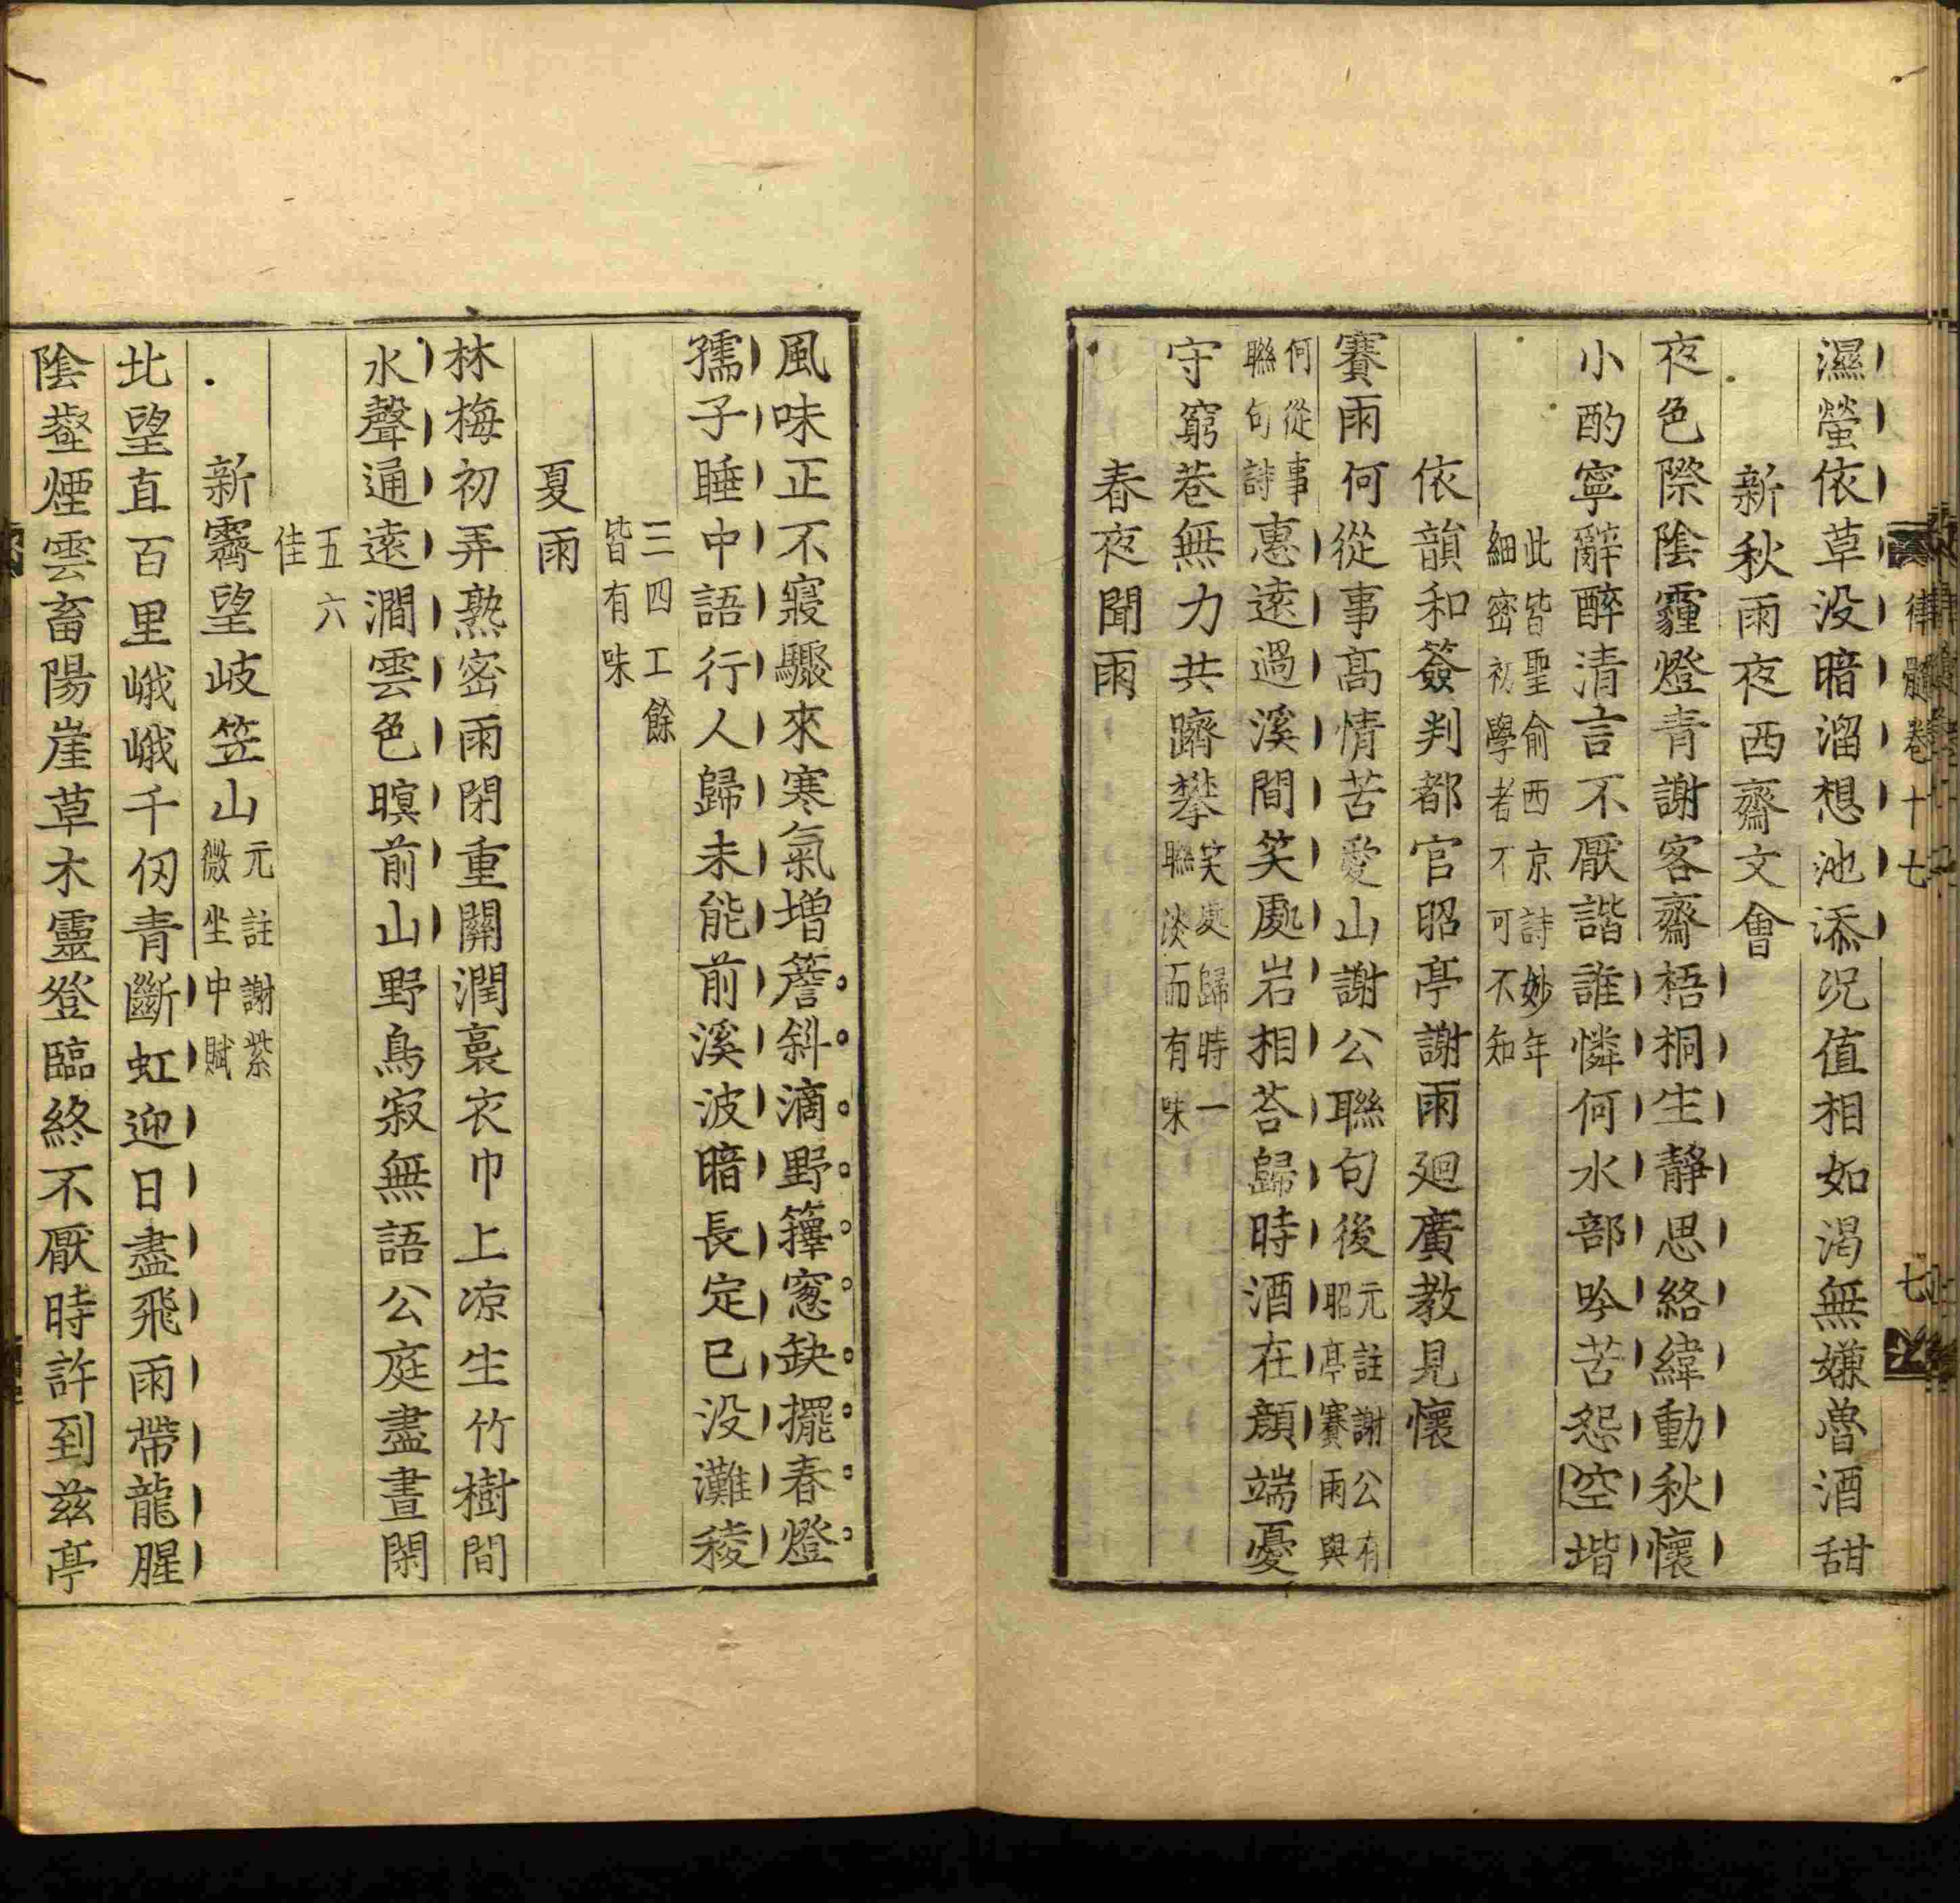 濕螢依草没暗溜想池添況值相如渴無嫌魯酒甜
新秋雨夜西齋文會
夜色際陰霾燈青謝客齋梧桐生靜思絡緯動秋懷
小酌寧辭醉清言不厭諧誰憐何水部吟苦怨空堦
此皆聖俞西京詩妙年
細密初學者不可不知
依韻和簽判都官昭亭謝雨廻廣教見懷
賽雨何從事高情苦愛山謝公聯句後
元註謝公有
昭亭賽雨與
何從事
聯句詩
惠遠過溪間笑處岩相荅歸時酒在顔端憂
守窮巷無力共躋攀
笑處歸時一
聯淡而有味
春夜聞雨
律髓卷十七
七
風味正不寢驟來寒氣増簷斜滴野籜窻缺擺春燈
孺子睡中語行人歸未能前溪波暗長定已没灘稜
三四工餘
皆有味
夏雨
林梅初弄熟密雨閉重關潤裛衣巾上凉生竹樹間
水聲通遠澗雲色暝前山野鳥寂無語公庭盡晝閑
五六
佳
新霽望岐笠山
元註謝紫
微坐中賦
北望直百里峨峨千仞青斷虹迎日盡飛雨帶龍腥
陰壑煙雲畜陽崖草木靈登臨終不厭時許到兹亭